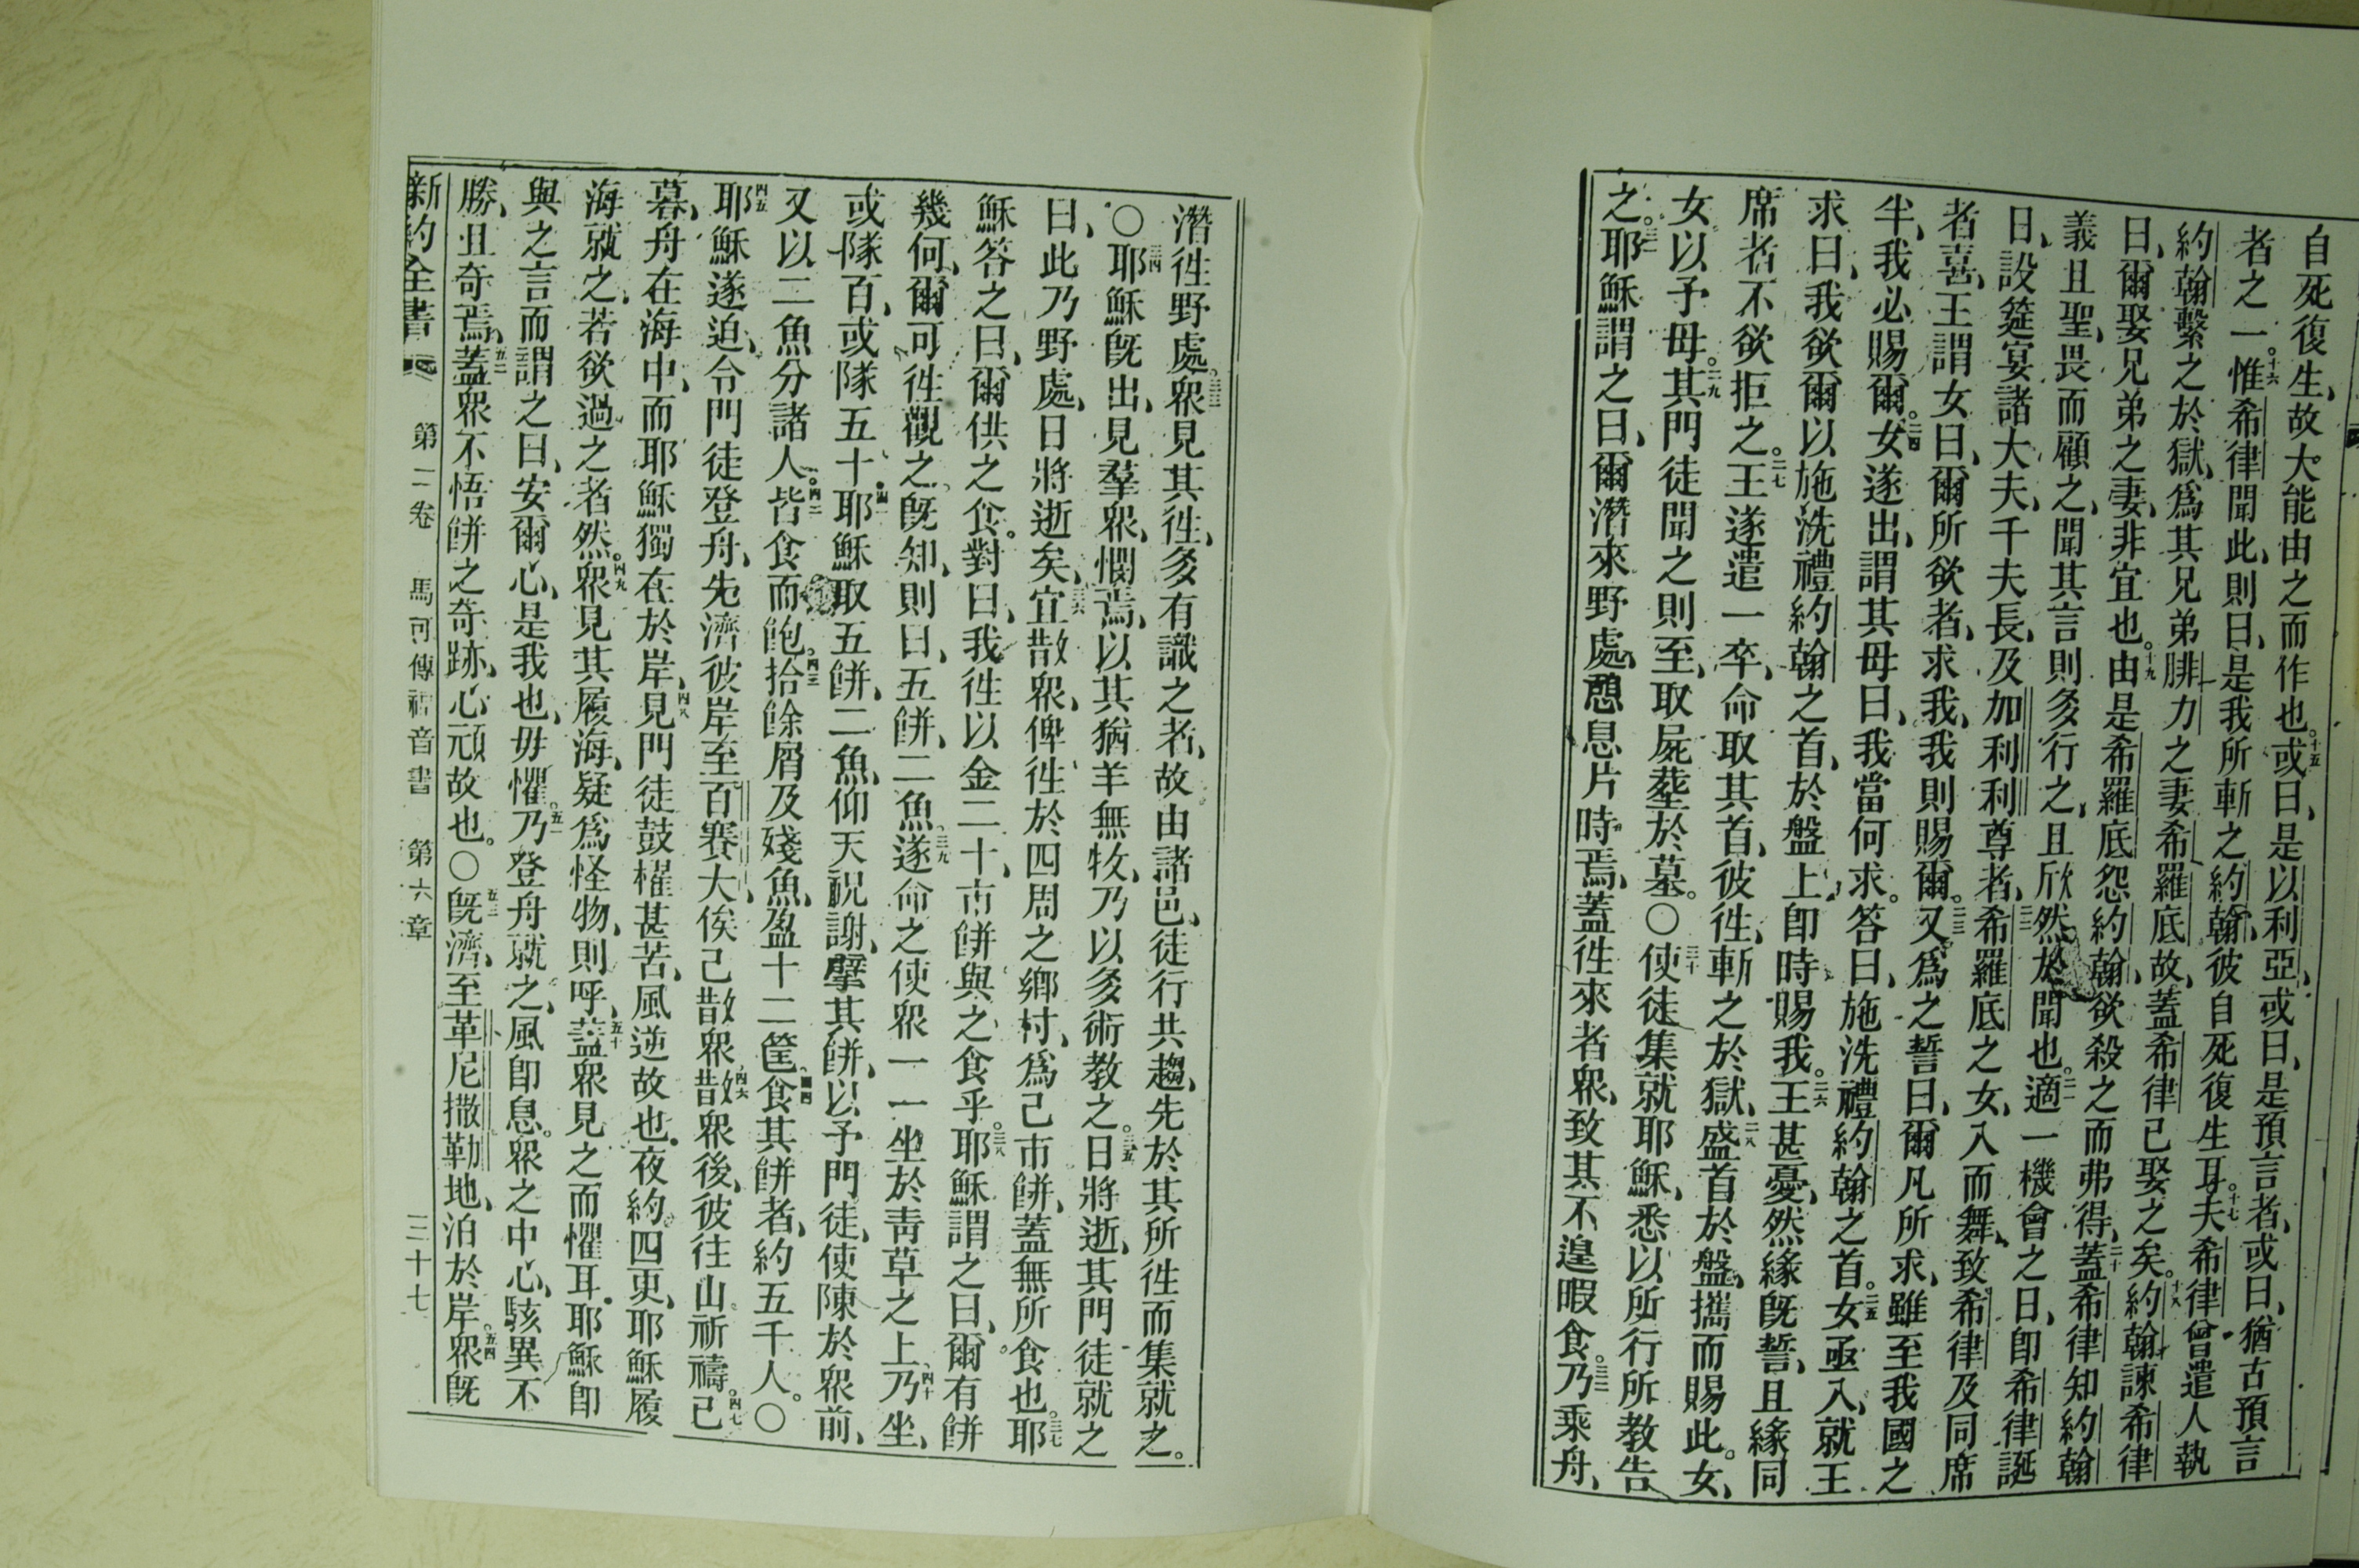 自死復生、故大能由之而作也。十五或曰、是以利亞、或曰、是預言者、或曰、猶古預言
者之一。十六惟希律聞此、則曰、是我所斬之約翰、彼自死復生耳。十七夫希律曾遣人執
約翰繫之於獄、爲其兄弟腓力之妻希羅底故、蓋希律己娶之矣。十八約翰諫希律
曰、爾娶兄弟之妻、非宜也。十九由是希羅底怨約翰、欲殺之而弗得、二十蓋希律知約翰
義且聖、畏而顧之、聞其言則多行之、且欣然於聞也。二一適一機會之日、卽希律誕
日、設筵宴諸大夫、千夫長、及加利利尊者、二二希羅底之女、入而舞、致希律及同席
者喜、王謂女曰、爾所欲者、求我、我則賜爾。二三又爲之誓曰、爾凡所求、雖至我國之
半、我必賜爾。二四女遂出、謂其母曰、我當何求。答曰、施洗禮約翰之首。二五女亟入、就王
求曰、我欲爾以施洗禮約翰之首、於盤上、卽時賜我。二六王甚憂、然緣旣誓、且緣同
席者不欲拒之。二七王遂遣一卒、命取其首、彼徃、斬之於獄、二八盛首於盤、攜而賜此女、
女以予母。二九其門徒聞之則至、取屍葬於墓。〇三十使徒集就耶穌、悉以所行所教告
之。三一耶穌謂之曰、爾潛來野處、憩息片時焉、蓋徃來者衆、致其不遑暇食。三二乃乘舟、
潛徃野處。三三衆見其徃、多有識之者、故由諸邑、徒行共趨、先於其所徃而集就之。
〇三四耶穌旣出、見羣衆、憫焉、以其猶羊無牧、乃以多術教之。三五日將逝、其門徒就之
曰、此乃野處、日將逝矣、三六宜散衆、俾徃於四周之鄕村、爲己市餅、蓋無所食也。三七耶
穌答之曰、爾供之食。對曰、我徃以金二十、市餅與之食乎。三八耶穌謂之曰、爾有餅
幾何、爾可徃觀之、旣知、則曰、五餅、二魚。三九遂命之使衆一一坐於靑草之上、四十乃坐、
或隊百、或隊五十。四一耶穌取五餅、二魚、仰天祝謝、擘其餅、以予門徒、使陳於衆前、
又以二魚分諸人。四二皆食而飽。四三拾餘屑及殘魚、盈十二筐、四四食其餅者、約五千人。〇
四五耶穌遂迫令門徒登舟、先濟彼岸至百賽大、俟己散衆、四六散衆後、彼往山祈禱。四七已
暮、舟在海中、而耶穌獨在於岸、四八見門徒鼓櫂甚苦、風逆故也。夜約四更、耶穌履
海就之、若欲過之者然。四九衆見其履海、疑爲怪物、則呼、五十蓋衆見之而懼耳。耶穌卽
與之言而謂之曰、安爾心、是我也、毋懼。五一乃登舟就之、風卽息。衆之中心、駭異不
勝、且奇焉、五二蓋衆不悟餅之奇跡、心頑故也。〇五三旣濟、至革尼撒勒地、泊於岸。五四衆旣
新約全書 第二卷 馬可傳福音書 第六章 三十七